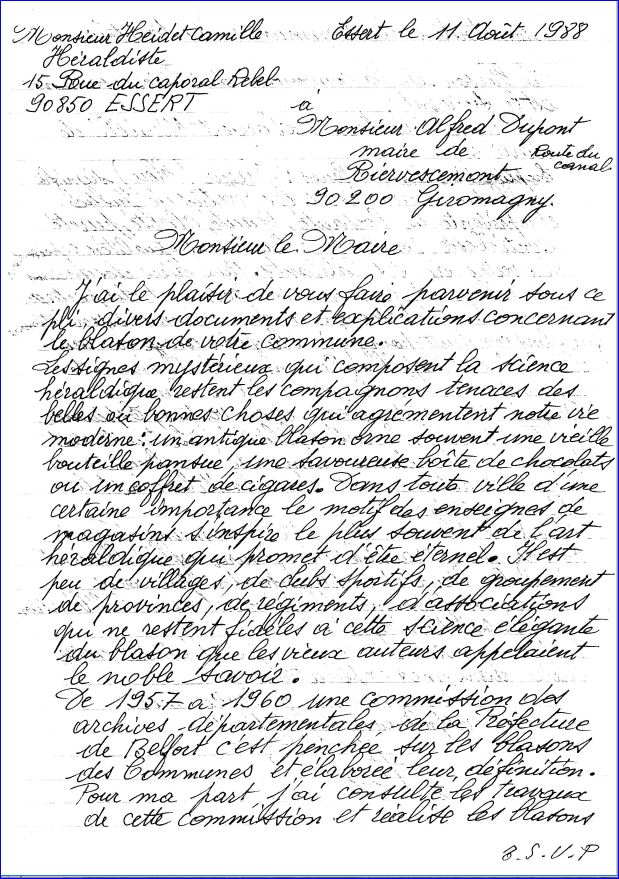 Monsieur Heidet Camille
Essert le 11 Août 1988
Héraldiste
15 Rue du caporal Rebel
90850 ESSERT
à
Monsieur Alfred Dupont
maire de
Riervescemont
Route du canal
90200 Giromagny.
Monsieur le Maire
J'ai le plaisir de vous faire parvenir sous ce
pli divers documents et explications concernant
le blason de votre commune.
Les signes mystérieux qui composent la science
héraldique restent les compagnons tenaces des
belles ou bonnes choses qui agrementent notre vie
moderne: un antique blason orne souvent une vieille
bouteille pansue, une savoureuse boîte de chocolats
ou un coffret de cigares. Dans toute ville d'une
certaine importance le motif des enseignes de
magasins s'inspire le plus souvent de l'art
héraldique qui promet d'être éternel. Il est
peu de villages, de clubs sportifs, de groupement
de provinces, de régiments, d'associations
qui ne restent fidèles à cette science élégante
du blason que les vieux auteurs appelaient
le noble savoir.
De 1957 a 1960 une commission des
archives départementales de la Préfecture
de Belfort c'est penchée sur les blasons
des Communes et élaboreé leur définition.
Pour ma part j'ai consulté les travaux
de cette commission et réalisé les blasons
T.S.V.P